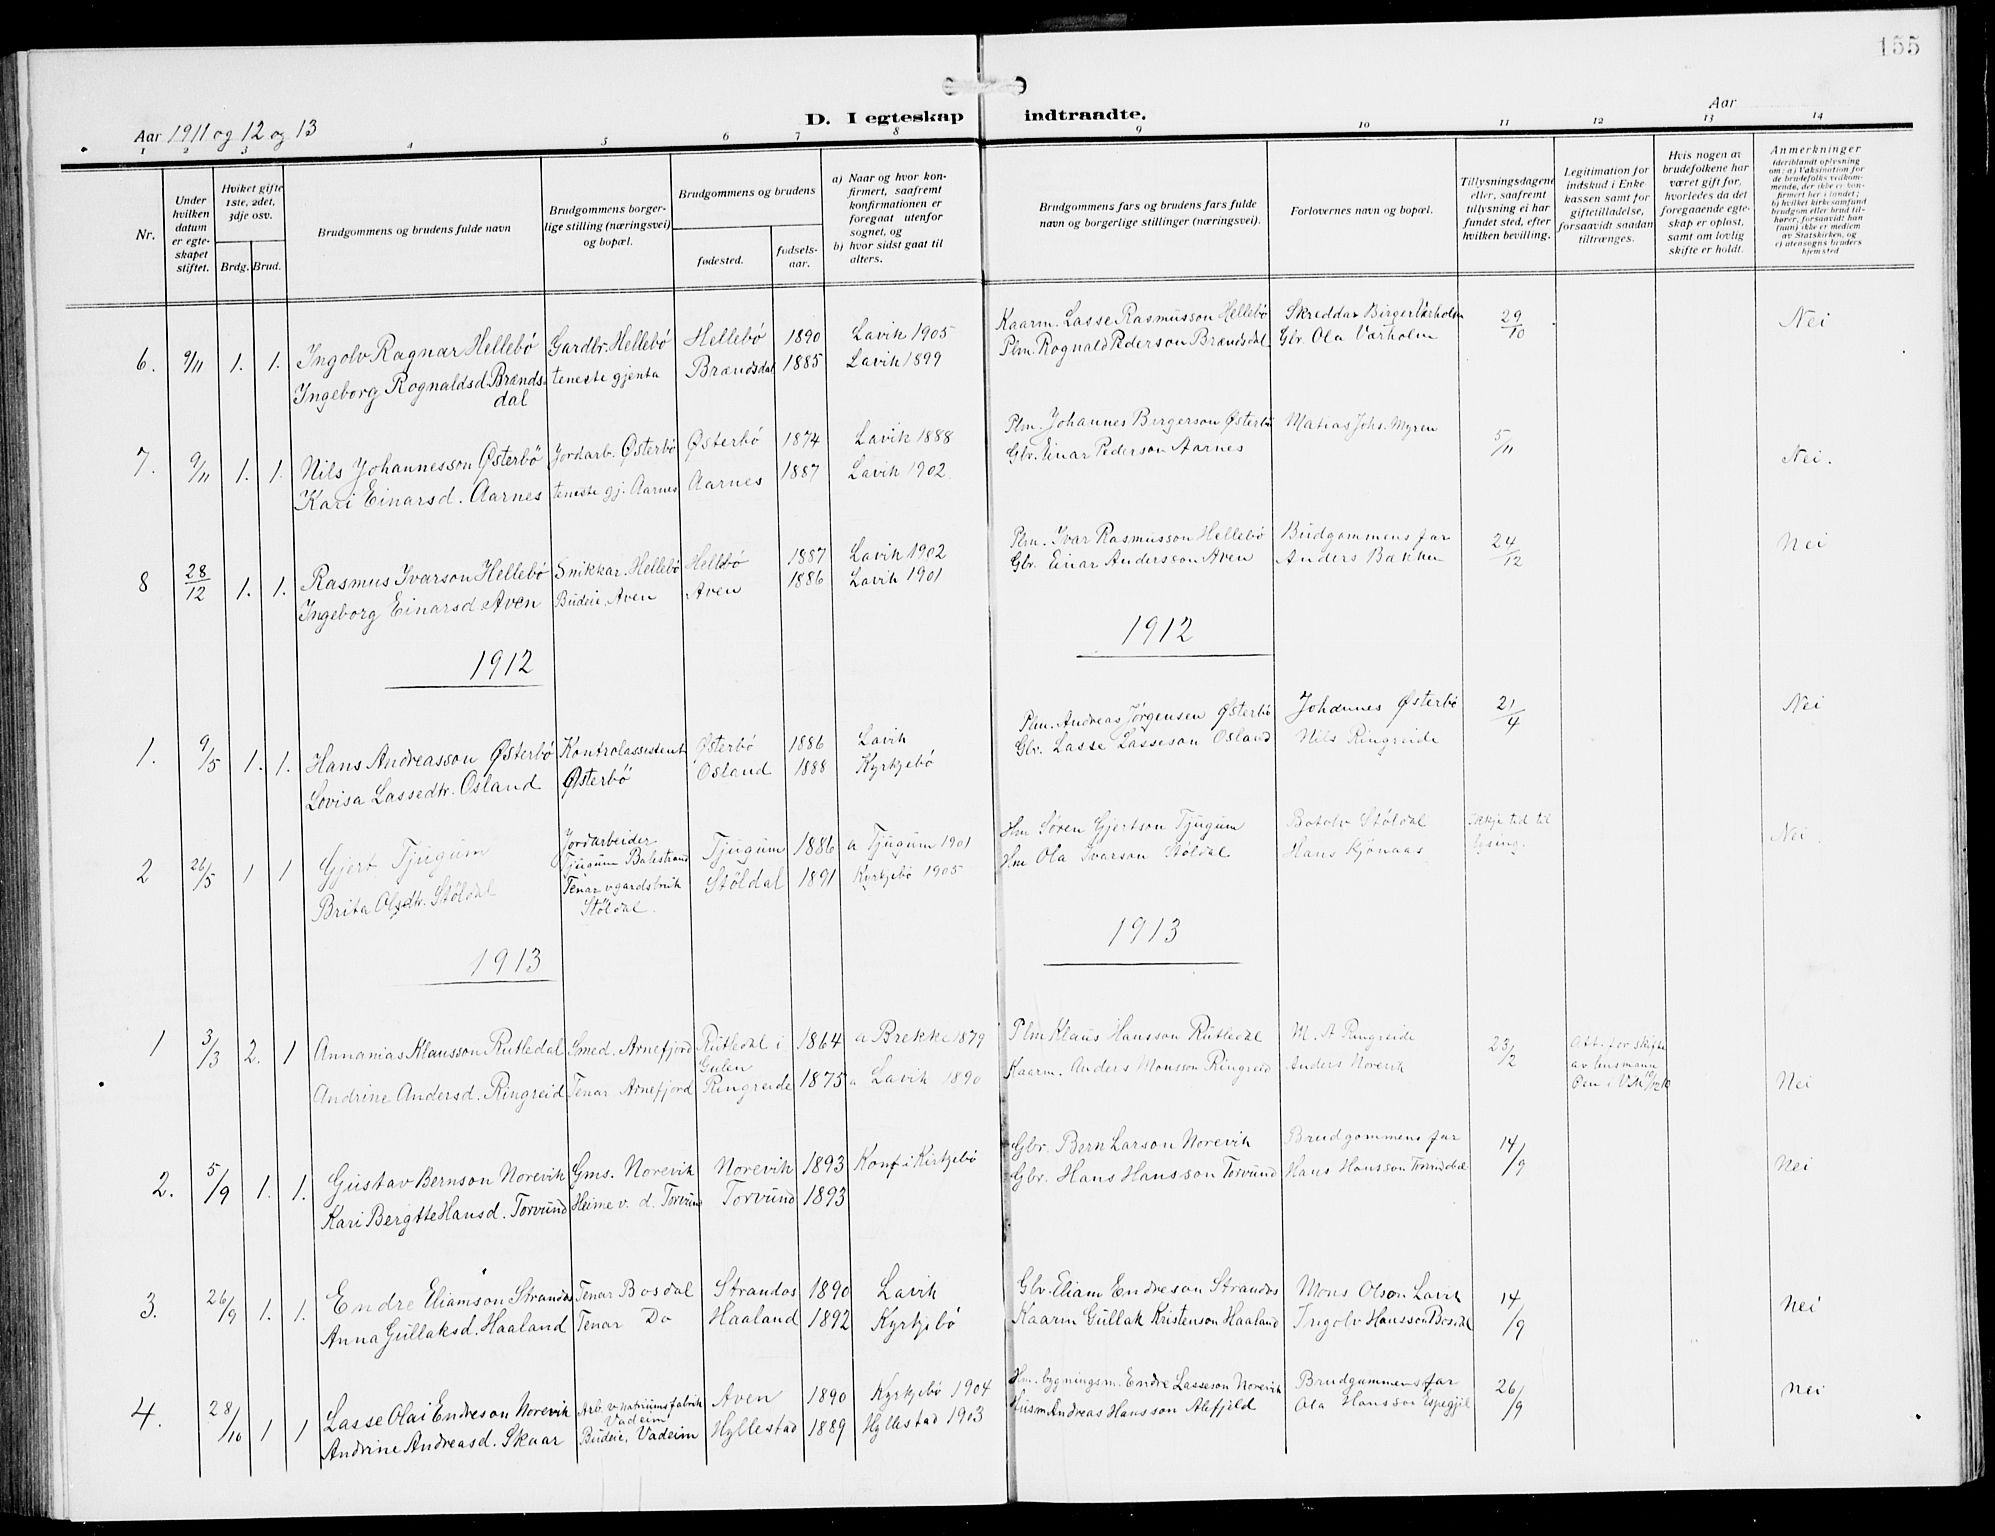 155
Aar 1911 og 12 og 13
D. I egteskap indtraadte.
Aar
1 2 3 4 5 6 7 8 9 10 11 12 13 14
Nr.
Under hvilken datum er egteskapet stiftet.
Hviket gifte 1ste, 2det, 3dje osv.
Brdg. Brud.
Brudgommens og brudens fulde navn
Brudgommens borgerlige stilling (næringsvei) og bopæl.
Brudgommens og brudens
fødested.
fødselsaar.
a) Naar og hvor konfirmert, saafremt konfirmationen er foregaat utenfor sognet, og
b) hvor sidst gaat til alters.
Brudgommens fars og brudens fars fulde navn og borgerlige stillinger (næringsvei).
Forlovernes navn og bopæl.
Tillysningsdagene eller, saafremt tillysning ei har fundet sted, efter hvilken bevilling.
Legitimation for indskud i Enkekassen samt for giftetilladelse, forsaavidt saadan tiltrænges.
Hvis nogen av brudefolkene har været gift før, hvorledes da det foregaaende egteskap er opløst, samt om lovlig skifte er holdt.
Anmerkninger (deriblandt oplysning om: a) Vaksination for de brudefolks vedkommende, der ikke er konfirmert her i landet; b) hvilket kirkesamfund brudgom eller brud tilhører, forsaavidt han (hun) ikke er medlem av Statskirken, og c) utensogns bruders hjemsted
6. 9/11 1. 1. Ingolv Ragnar Hellebö Gardbr. Hellebö Hellebö 1890 Lavik 1905 Kaarm. Lasse Rasmusson Hellebö Skreddar Birger Værholm 29/10 Nei
Ingeborg Rognaldsd. Brændsdal teneste gjenta Brændsdal 1885 Lavik 1899 Plm. Rognald Pederson Brændsdal Gbr. Ola Værholm
7. 9/11 1. 1. Nils Johannesson Østerbö Jordarb. Østerbö Østerbö 1874 Lavik 1888 Plm. Johannes Birgerson Østerbö Matias Johs. Myren 5/11 Nei.
Kari Einarsd. Aarnes teneste gj. Aarnes Aarnes 1887 Lavik 1902 Gbr. Einar Pederson Aarnes
8 28/12 1. 1. Rasmus Ivarson Hellebö Snikkar. Hellebö Hellebö 1887 Lavik 1902 Plm. Ivar Rasmusson Hellebö Brudgommens far 24/12 Nei
Ingeborg Einarsd. Aven Budeie, Aven Aven 1886 Lavik 1901 Gbr. Einar Andersson Aven Anders Bakken
1912 1912
1. 9/5 1. 1. Hans Andreasson Østerbö Kontrolassistent Østerbö 1886 Lavik Plm. Andreas Jørgensen Østerbö Johannes Østerbö 21/4 Nei
Lovisa Lassedtr. Osland Østerbö Osland 1888 Kyrkjebö Gbr. Lasse Lasseson Osland Nils Ringreide
2 26/5 1 1 Gjert Tjugum Jordarbeider Tjugum Balestrand Tjugum 1886 a Tjugum 1901 Hm Søren Gjertson Tjugum Botolv Stöldal Ikkje tid til lysing. Nei
Brita Olsdtr. Stöldal Tenar v gardsbruk Stöldal. Stöldal 1891 Kyrkjebö 1905 Hm Ola Ivarson Stöldal Hans Kjönaas
1913 1913
1 3/3 2. 1 Annanias Klausson Rutledal Smed. Arnefjord Rutledal i Gulen 1864 a Brekke 1879 Plm Klaus Hansson Rutledal M. A Ringreide 23/2 Att. for skifte av lensmann
Andrine Andersd. Ringreid Tenar Arnefjord Ringreide 1875 a Lavik 1890 Kaarm. Anders Monsson Ringreid Anders Norevik Nei
2. 5/9 1. 1. Gustav Bernson Norevik Gms. Norevik Norevik 1893 Konf i Kirkjebö Gbr. Bern Larson Norevik Brudgommens far 14/9 Nei
Kari Bergitte Hansd. Torvund Heime v. d. Torvund Torvund 1893 Gbr. Hans Hansson Torvund Hans Hansson
3. 26/9 1. 1. Endre Eliamson Strandos Tenar Bosdal Strandos 1890 Lavik Gbr. Eliam Endreson Strandos Mons Olson Lavik 14/9 Nei
Anna Gullaksd. Haaland Tenar Do Haaland 1892 Kyrkjebö Kaarm Gullak Kristenson Haaland Ingolv Hansson Bosdal
4. 28/10 1 1 Lasse Olai Endreson Norevik Arb. v natriumsfabrik Vadeim Aven 1890 Kyrkjebö 1904 Hm. bygningsm. Endre Lasseson Norevik Brudgummens far 26/9 Nei
Andrine Andreasd. Skaar Budeie, Vadeim Hyllestad 1889 Hyllestad 1903 Husm Andreas Hansson Alefjeld Ola Hansson Espegjil